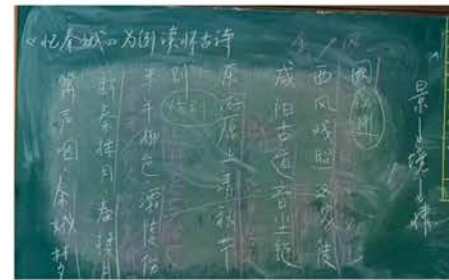 《忆秦娥》为例读怀古诗
箫声咽·秦娥梦
断秦楼月·秦楼月
年年柳色灞陵伤
别
乐游原上清秋节
咸阳古道音尘绝
西风残照汉家陵
阙
景→境→情